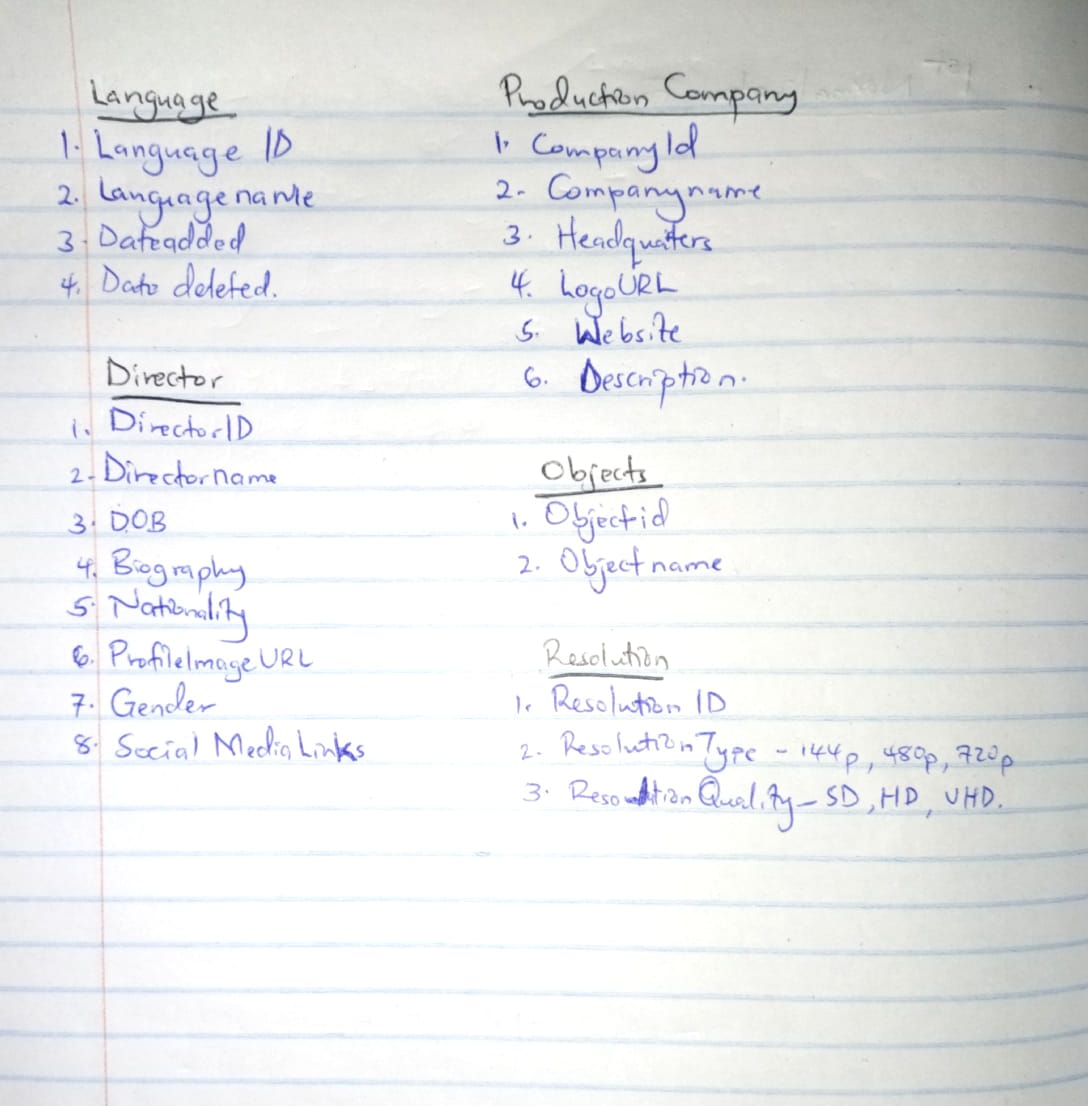 Language
1. Language ID
2. Language name
3. Dateadded
4. Date deleted.
Director
1. DirectorID
2. Directorname
3. DOB
4. Biography
5. Nationality
6. ProfileImageURL
7. Gender
8. Social Media Links
Production Company
1. CompanyId
2. Companyname
3. Headquaters
4. LogoURL
5. Website
6. Description.
Objects
1. Objectid
2. Object name
Resolution
1. Resolution ID
2. ResolutionType - 144p, 480p, 720p
3. Resolution Quality - SD, HD, UHD.